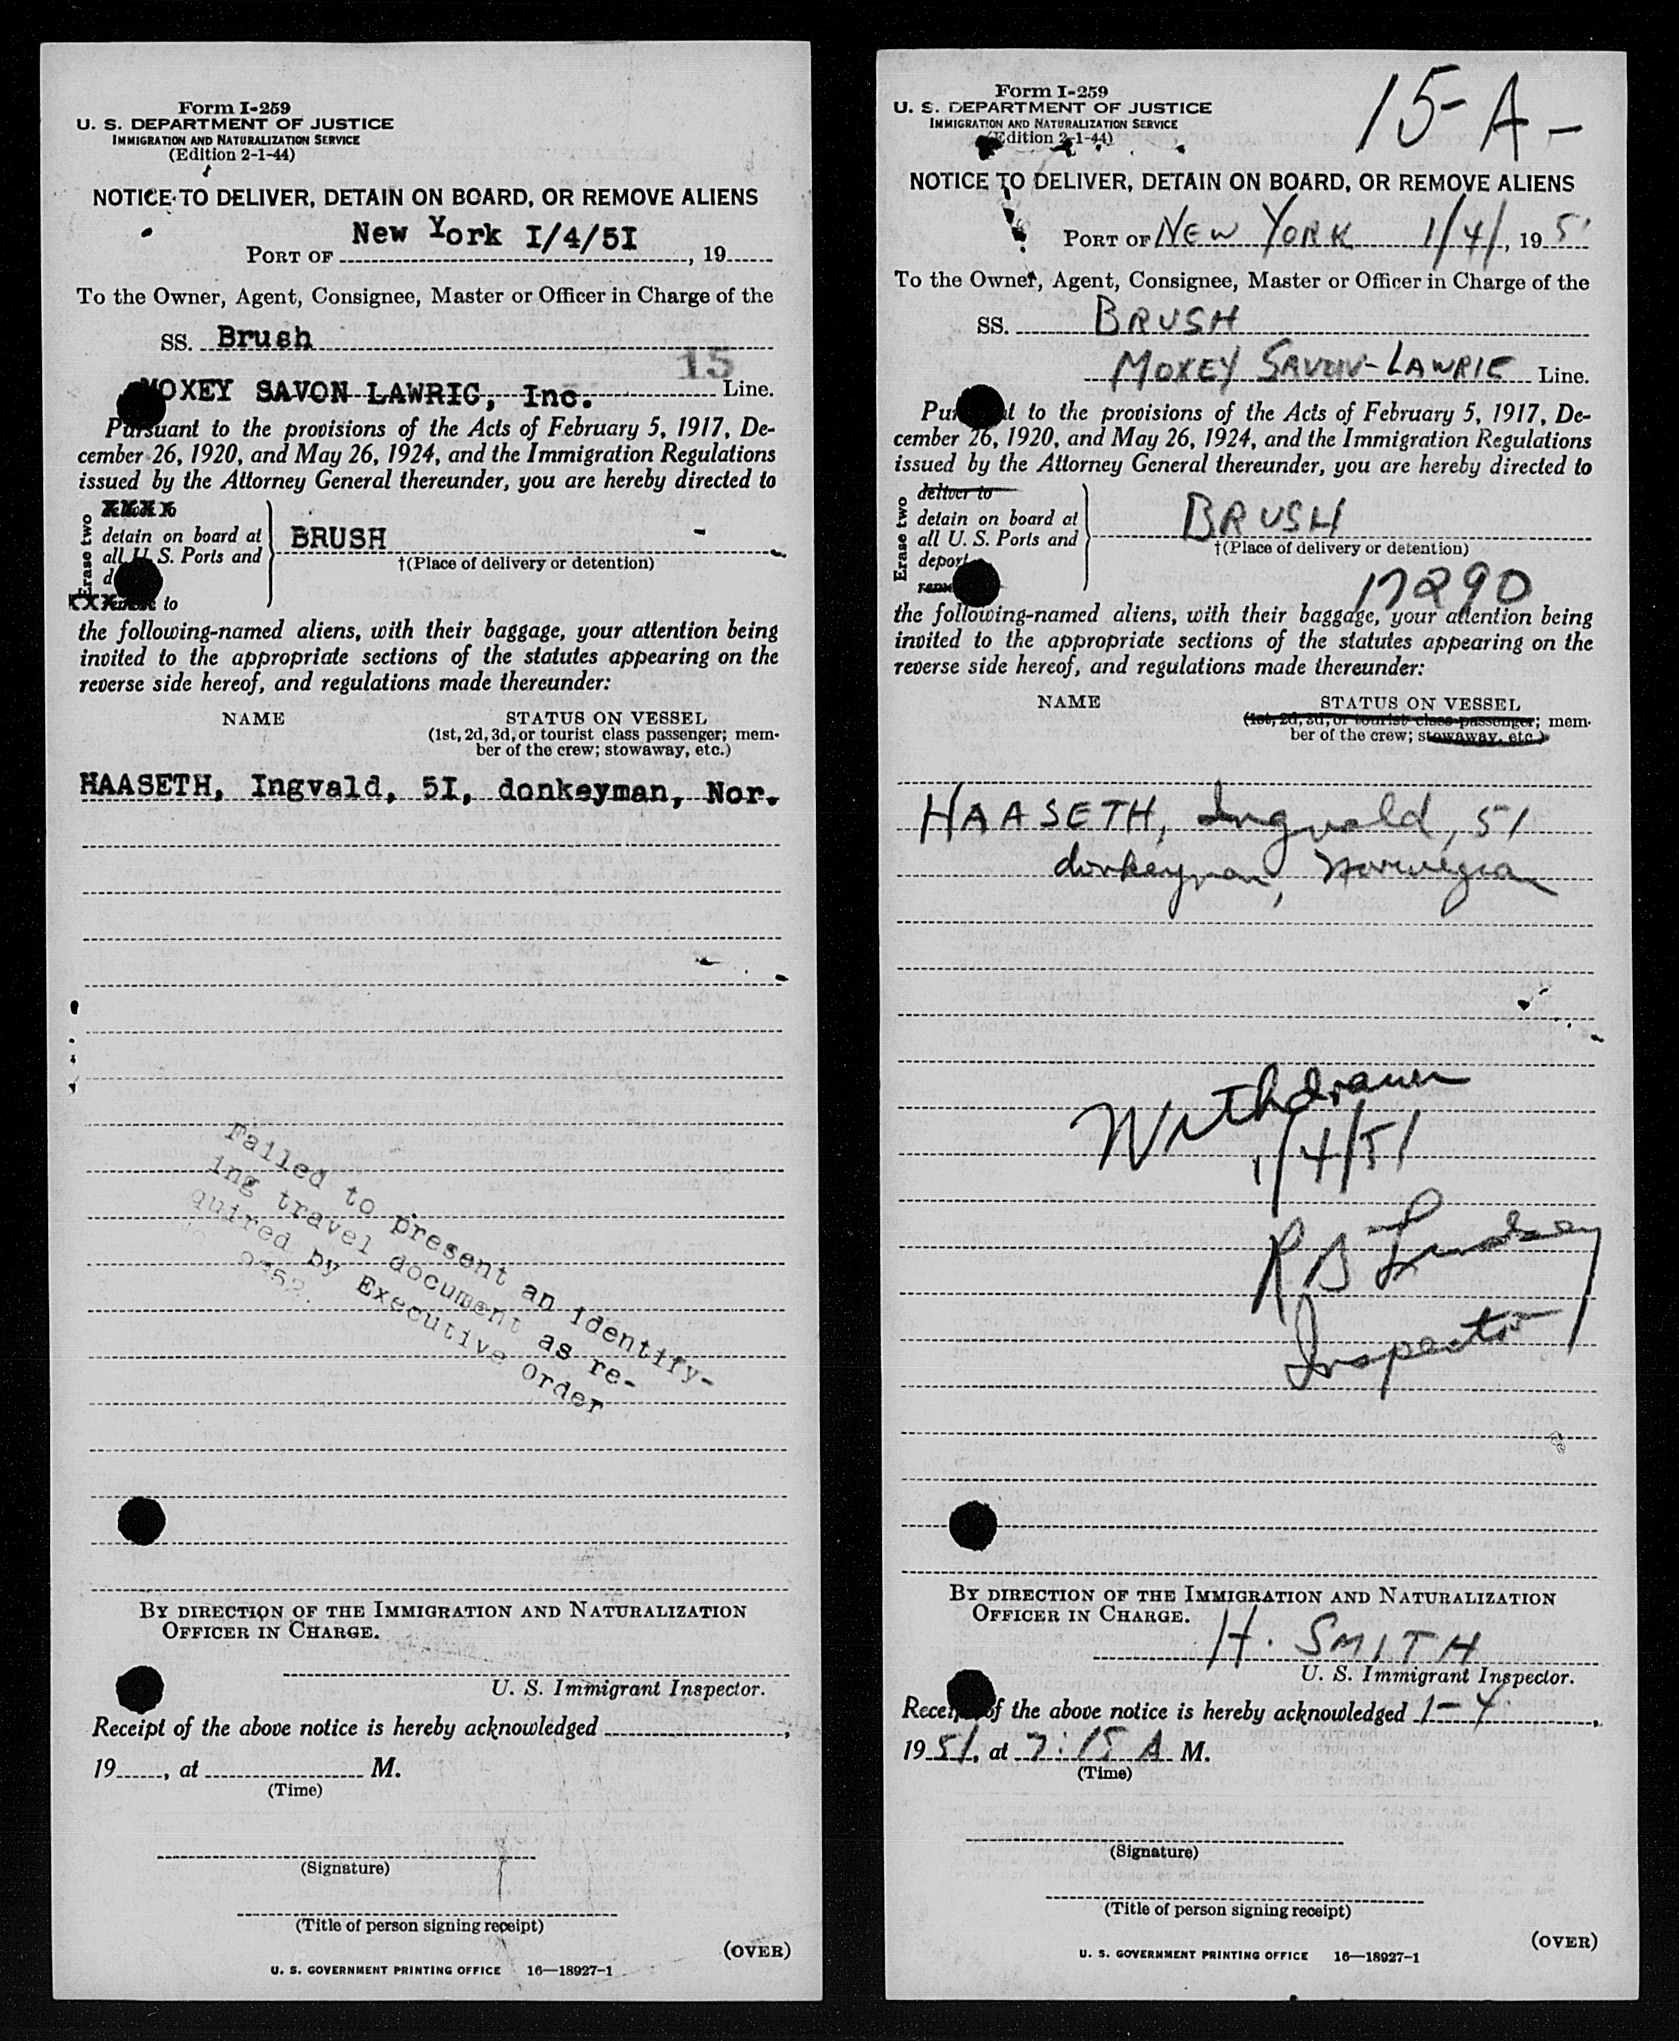 Form I-259
U. S. DEPARTMENT OF JUSTICE
IMMIGRATION AND NATURALIZATION SERVICE
(Edition 2-1-44)
NOTICE TO DELIVER, DETAIN ON BOARD, OR REMOVE ALIENS
PORT OF New York I/4/5I, 19
To the Owner, Agent, Consignee, Master or Officer in Charge of the
SS. Brush
15
MOXEY SAVON LAWRIG, Inc. Line.
Pursuant to the provisions of the Acts of February 5, 1917, De-
cember 26, 1920, and May 26, 1924, and the Immigration Regulations
issued by the Attorney General thereunder, you are hereby directed to
Erase two
detain on board at
all U. S. Ports and
BRUSH -
†(Place of delivery or detention)
to
the following-named aliens, with their baggage, your attention being
invited to the appropriate sections of the statutes appearing on the
reverse side hereof, and regulations made thereunder:
NAME STATUS ON VESSEL
(1st, 2d, 3d, or tourist class passenger; mem-
ber of the crew; stowaway, etc.)
HAASETH, Ingvald, 5I, donkeyman, Nor.
Failed to present an identify-
ing travel document as re-
quired by Executive Order
BY DIRECTION OF THE IMMIGRATION AND NATURALIZATION
OFFICER IN CHARGE.
U. S. Immigrant Inspector.
Receipt of the above notice is hereby acknowledged ,
19 , at M.
(Time)
(Signature)
(Title of person signing receipt)
(OVER)
U. S. GOVERNMENT PRINTING OFFICE 16—18927-1
15-A-
Form I-259
U. S. DEPARTMENT OF JUSTICE
IMMIGRATION AND NATURALIZATION SERVICE
(Edition 2-1-44)
NOTICE TO DELIVER, DETAIN ON BOARD, OR REMOVE ALIENS
PORT OF NEW YORK 1/4/, 195
To the Owner, Agent, Consignee, Master or Officer in Charge of the
SS. BRUSH
MOXEY SAVON-LAWRIE Line.
Pursuant to the provisions of the Acts of February 5, 1917, De-
cember 26, 1920, and May 26, 1924, and the Immigration Regulations
issued by the Attorney General thereunder, you are hereby directed to
Erase two
deliver to
detain on board at
all U. S. Ports and
deport
BRUSH
†(Place of delivery or detention)
17290
the following-named aliens, with their baggage, your attention being
invited to the appropriate sections of the statutes appearing on the
reverse side hereof, and regulations made thereunder:
NAME STATUS ON VESSEL
(1st, 2d, 3d, or tourist class passenger; mem-
ber of the crew; stowaway, etc.)
HAASETH, Ingvald, 51
donkeyman, Norwegian
Withdrawn
1/4/51
R B Lindsay
Inspector
BY DIRECTION OF THE IMMIGRATION AND NATURALIZATION
OFFICER IN CHARGE.
H. SMITH
U. S. Immigrant Inspector.
Receipt of the above notice is hereby acknowledged 1-4,
1951, at 7:15 A M.
(Time)
(Signature)
(Title of person signing receipt)
(OVER)
U. S. GOVERNMENT PRINTING OFFICE 16—18927-1